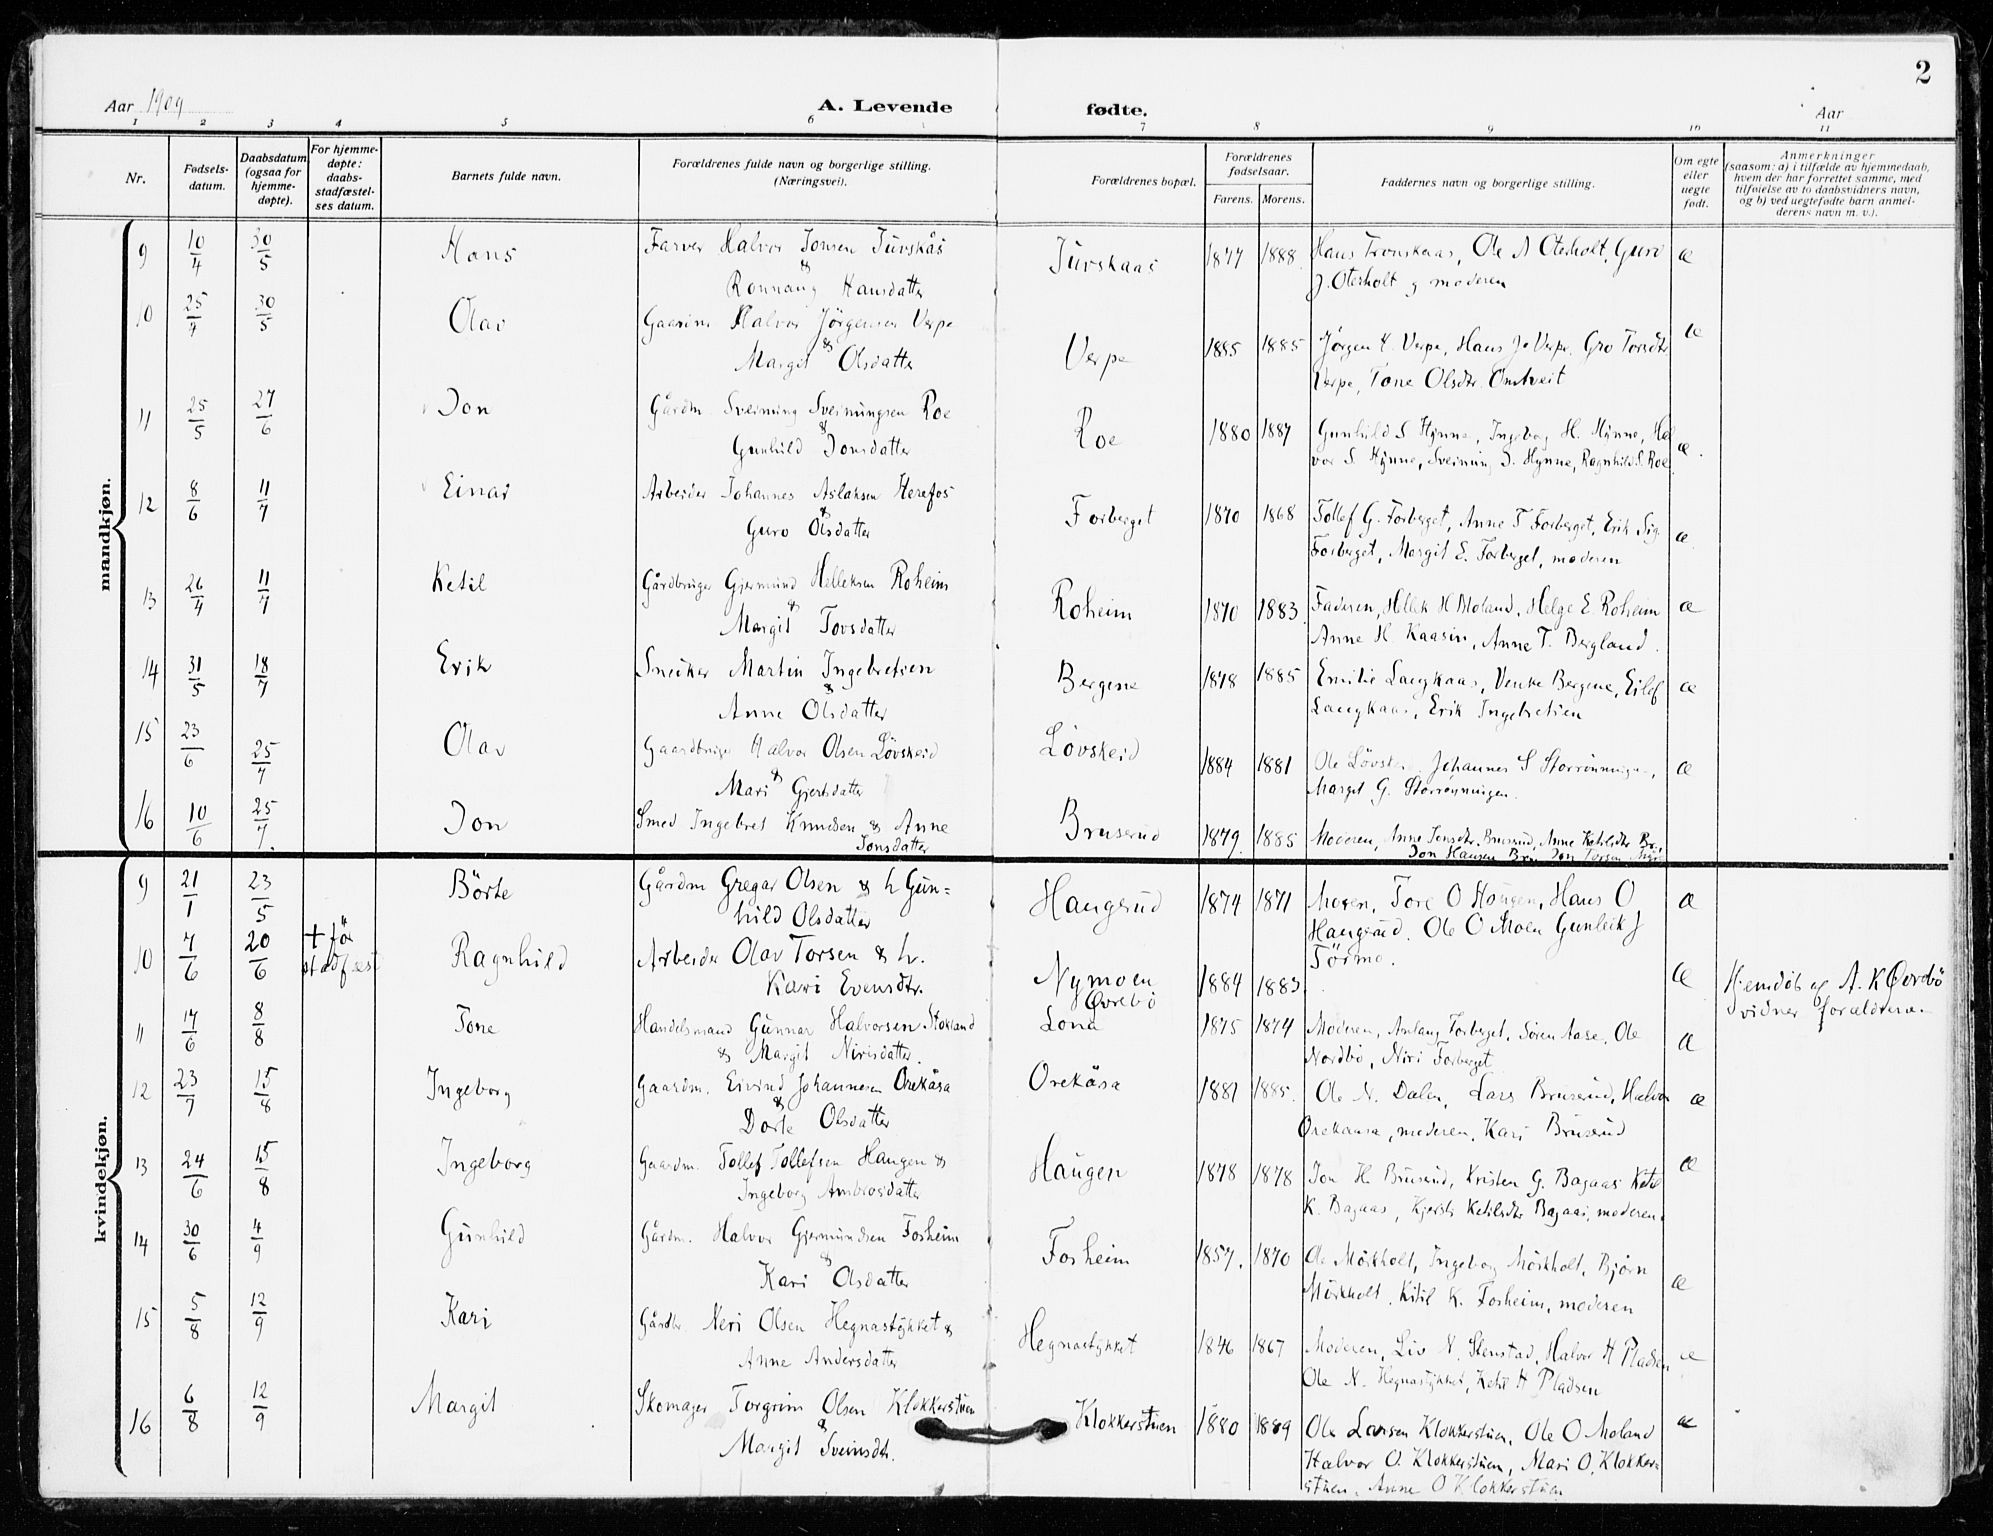 2
Aar 1909 A. Levende fødte. Aar
1 2 3 4 5 6 7 8 9 10 11
Nr.
Fødsels-
datum.
Daabsdatum
(ogsaa for
hjemme-
døpte).
For hjemme-
døpte:
daabs-
stadfæstel-
ses datum.
Barnets fulde navn.
Forældrenes fulde navn og borgerlige stilling.
(Næringsvei).
Forældrenes bopæl.
Forældrenes
fødselsaar.
Farens. Morens.
Faddernes navn og borgerlige stilling.
Om egte
eller
uegte
født.
Anmerkninger
(saasom: a) i tilfælde av hjemmedaab,
hvem der har forrettet samme, med
tilføielse av to daabsvidners navn,
og b) ved uegtefødte barn anmel-
derens navn m. v.).
mandkjøn.
9 10/4 30/5 Hans Farver Halvor Jonsen Jurskås
& Rønnaug Hansdatter
Jurskaas 1877 1888 Hans Jronskaas, Ole A Oterholt, Guro æ
J. Oterholt og moderen
10 25/4 30/5 Olav Gaarm Halvor Jörgensen Verpe
& Margit Olsdatter
Verpe 1885 1885 Jørgen H. Verpe, Hans J. Verpe, Gro Torsdtr æ
Verpe, Tone Olsdtr. Omtveit
11 25/5 27/6 Jon Gårdm. Sveinung Sveinungsen Roe
& Gunhild Jonsdatter
Roe 1880 1887 Gunhild S Hynne, Ingebog H. Hynne, Hal
vor S. Hynne, Sveinung S. Hynne, Ragnhild S. Roe æ
12 8/6 11/7 Einar Arbeider Johannes Aslaksen Herefos
& Guro Olsdatter
Forberget 1870 1868 Tollef G. Forberget, Anne T Forberget, Erik Sig.
Forberget, Margit E. Forberget, moderen æ
13 26/4 11/7 Ketil Gårdbruger Gjermund Helleksen Roheim
& Margit Tovsdatter
Roheim 1870 1883 Faderen, Hellek H Moland, Helge E. Roheim æ
Anne H. Kaasin, Anne T. Bergland.
14 31/5 18/7 Erik Sneiker Martin Ingebretsen
& Anne Olsdatter
Bergene 1878 1885 Emilie Langkaas, Venke Bergene, Eilef æ
Langkaas, Erik Ingebretsen
15 23/6 25/7 Olav Gaardbruger Halvor Olsen Lövskeid
& Mari Gjertsdatter
Lövskeid 1884 1881 Ole Lövske Johannes S Storrønningen, æ
Margit G. Storrønningen.
16 10/6 25/7. Jon Smed Ingebret Knudsen & Anne
Jonsdatter
Bruserud 1879 1885 Moderen, Anne Jonsdtr. Bruserud, Anne Ketilsdtr
Jon Hansen
kvindekjøn.
9 21/1 23/5 Börte Gårdm Gregar Olsen & h Gun=
hild Olsdatter
Haugerud 1874 1871 Moren, Tore O Haugen, Hans O æ
Haugerud. Ole O Moen Gunleik J
Törmo.
10 7/6 20/6 + för
stadfæst
Ragnhild Arbeider Olav Torsen & h.
Kari Evensdtr.
Nymoen
Øvrebö
1884 1883 æ Hjemdöbt af A. K Øvrebö
vidner forældrene
11 17/6 8/8 Tone Handelsmand Gunnar Halvorsen Stokland
& Margit Nirisdatter.
Lona 1875 1874 Moderen, Anlaug Forberget, Søren Aase, Ole
Nordbö, Niri Forberget æ
12 23/7 15/8 Ingeborg Gaardm. Eivind Johannesen Orekåsa
& Dorte Olsdatter
Orekåsa 1881 1885. Ole N. Dalen, Lars Bruserud, Halvor æ
Orekaasa, moderen, Kari Bruserud
13 24/6 15/8 Ingeborg Gaardm. Tollef Tollefsen Haugen &
Ingeborg Ambrosdatter
Haugen 1878 1878 Jon H. Bruserud, Kristen G. Bagaas Ketil æ
K. Bagaas, Kjersti Ketilsdtr Bagaas, moderen.
14 30/6 4/9 Gunhild Gårdm. Halvor Gjermundsen Forheim
& Kari Olsdatter
Forheim 1857. 1870 Ole Mörkholt, Ingeborg Mörkholt, Bjørn
Mörkholt, Kitil K. Forheim, moderen æ
15 5/8 12/9 Kari Gårdbr. Neri Olsen Hegnastykket &
Anne Andersdatter
Hegnastykket 1846 1867 Moderen, Liv N. Stenstad, Halvor H Pladsen æ
Ole N. Hegnastykket, Ketil H Pladsen
16 6/8 12/9 Margit Skomager Torgrim Olsen Klokkerstuen
& Margit Sveinsdtr.
Klokkerstuen 1880 1889 Ole Larsen Klokkerstuen, Ole O Moland æ
Halvor O. Klokkerstuen, Mari O. Klokker=
stuen, Anne O Klokkerstuen